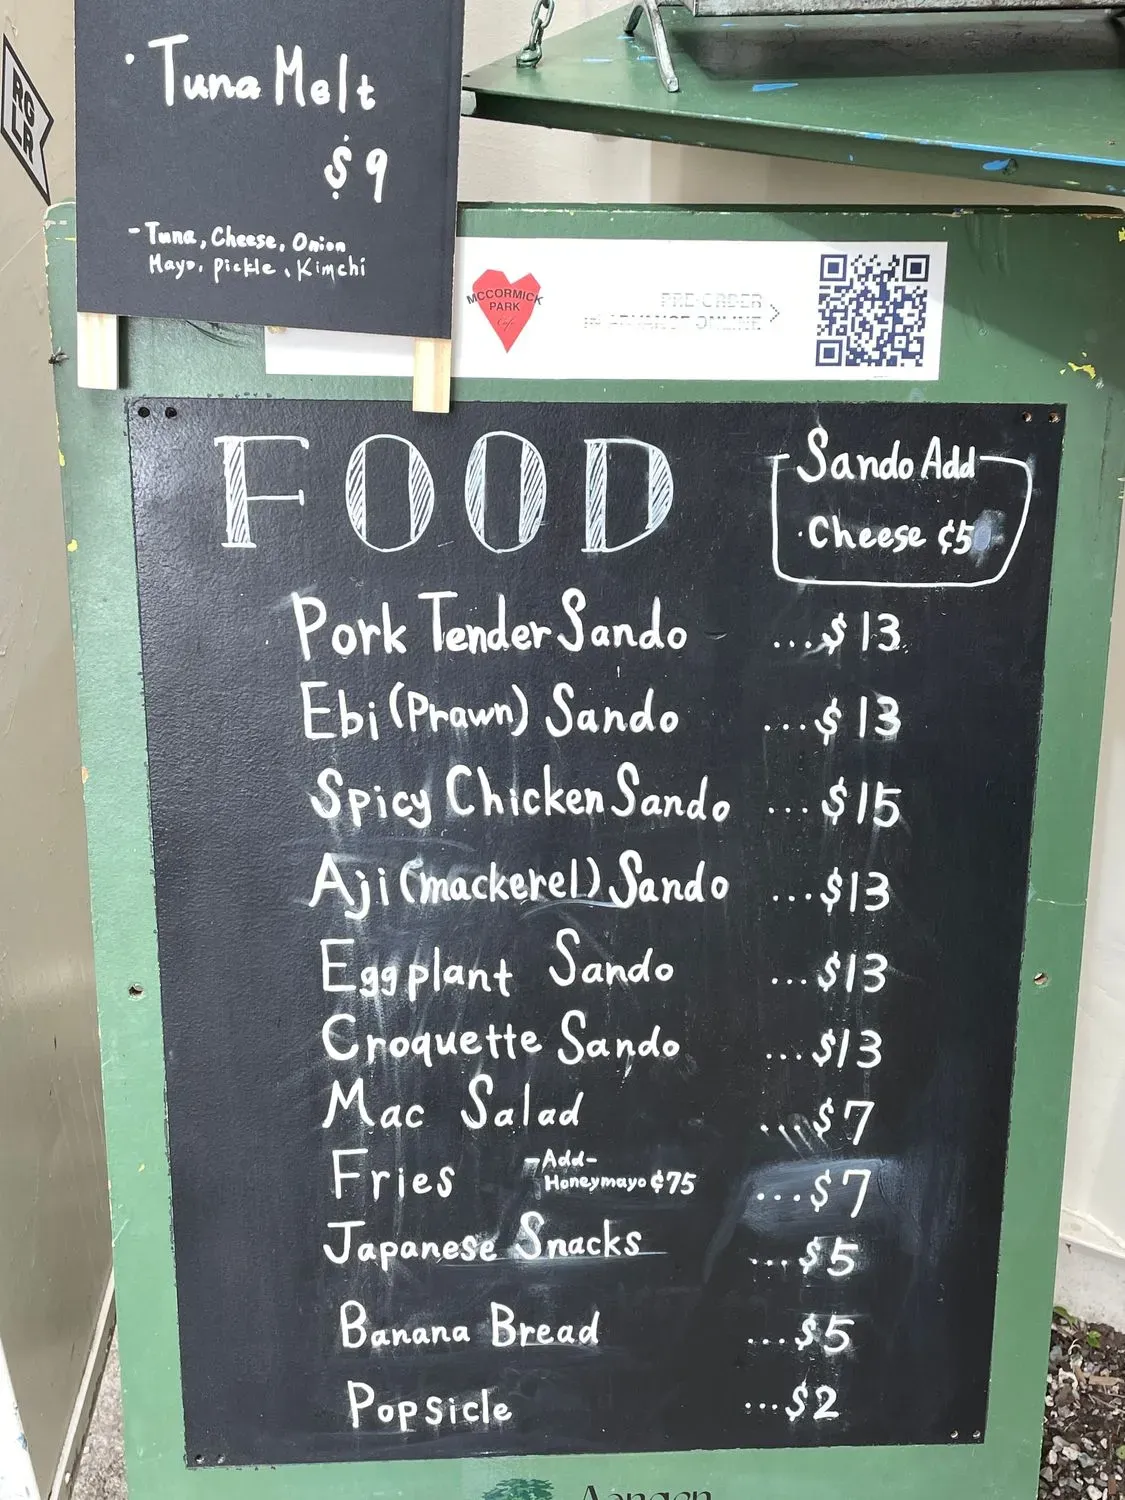 · Tuna Melt
$9
- Tuna, Cheese, Onion
Mayo, pickle, Kimchi
RG
LR
MCCORMICK
PARK
Cafe
PRE-ORDER
IN ADVANCE ONLINE
FOOD
Sando Add
· Cheese ¢5
Pork Tender Sando ...$13
Ebi (Prawn) Sando ...$13
Spicy Chicken Sando ...$15
Aji (mackerel) Sando ...$13
Eggplant Sando ...$13
Croquette Sando ...$13
Mac Salad ...$7
Fries -Add- ...$7
Honeymayo ¢75
Japanese Snacks ...$5
Banana Bread ...$5
Popsicle ...$2